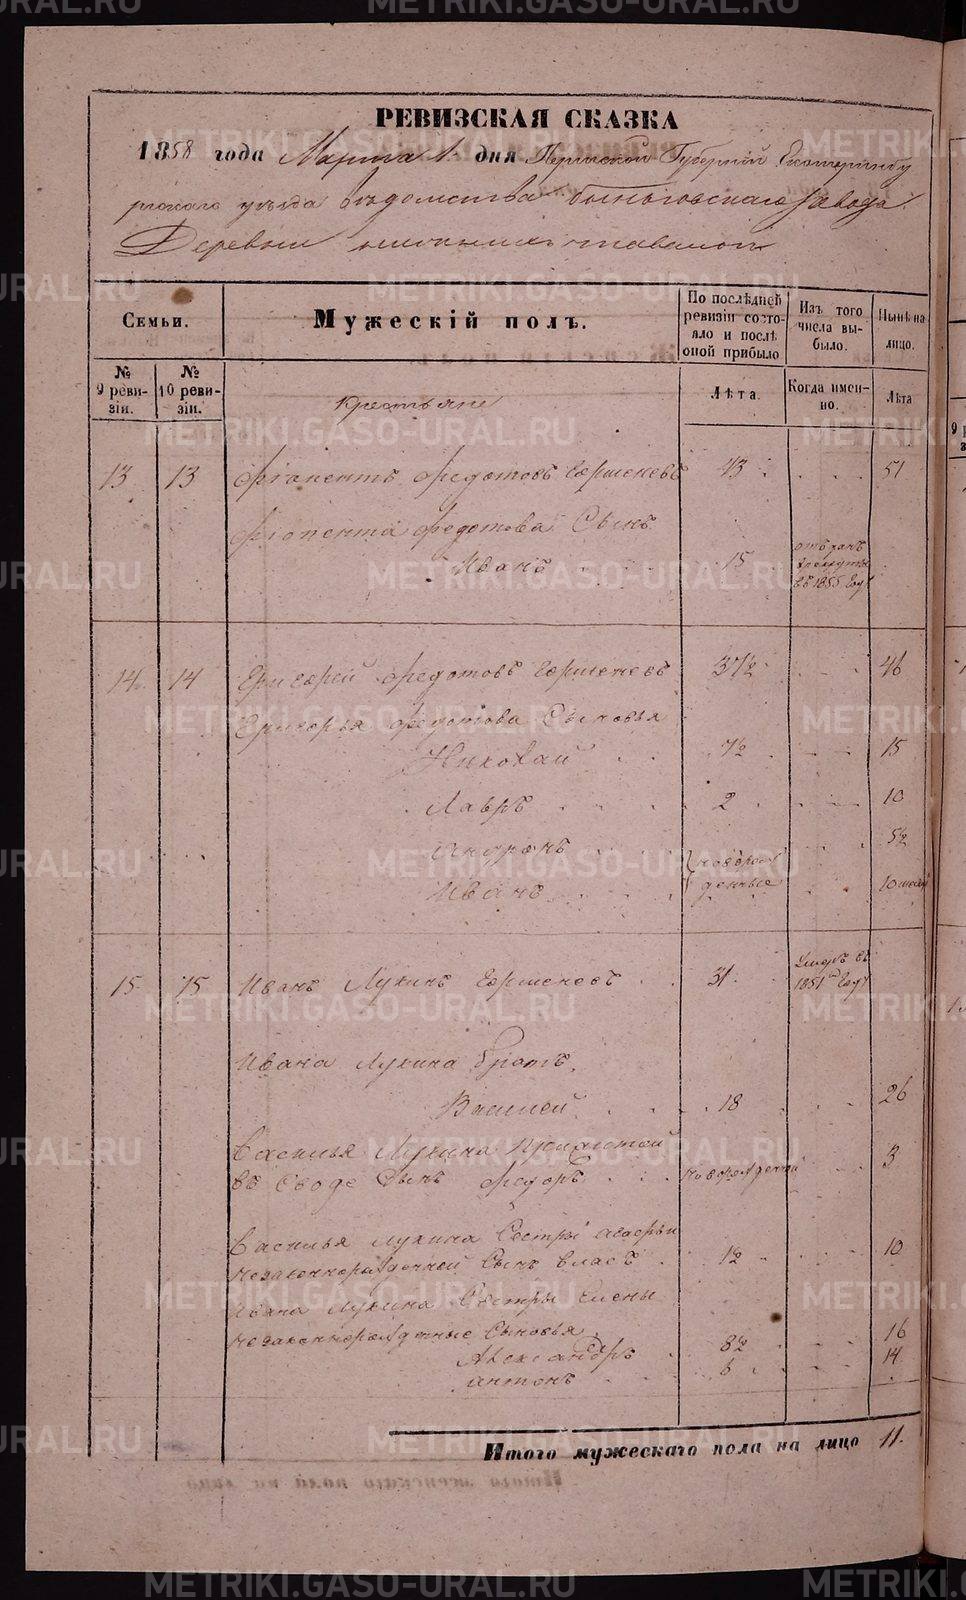 РЕВИЗСКАЯ СКАЗКА
1858 года Марта 1 дня Пермской Губернiи Екатеринбу
ргскаго уезда Ведомства Быньговскаго завода
Деревни нижнихъ тавологъ
Семьи.
Мужескій полъ.
По послѣдней ревизіи состояло и послѣ оной прибыло
Изъ того числа выбыло.
Нынѣ на лицо.
№ 9 ревизіи.
№ 10 ревизіи.
Лѣта.
Когда именно.
Лѣта
Крестьяне
13 13 Федотовъ 43 51
Федотова Сынъ
Иванъ 15 въ 1855 году
14 14 Григорей Федотовъ 37½ 46
Григорья Федотова Сыновья
Николай 7½ 15
Лавръ 2 10
Андронъ новорожденные 5½
Иванъ 10
15 15 Иванъ Лукинъ 31 Умеръ въ 1851м году
Ивана Лукина братъ
Василей 18 26
Василья Лукина
въ Сын Федоръ новорожденной 3
Василья Лукина Сестры
незаконнорожденной Сынъ Власъ 1½ 10
Ивана Лукина Сестры Елены
незаконнорожденные Сыновья
Александръ 8½ 16
Антонъ 6 14
Итого мужескаго пола на лицо 11.
METRIKI.GASO-URAL.RU